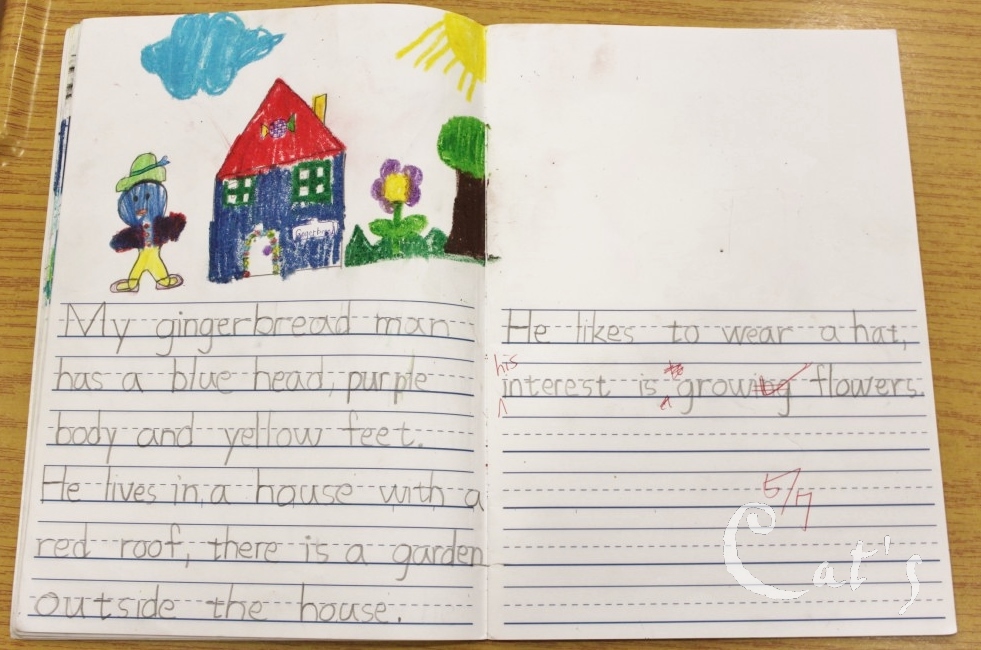 My gingerbread man
has a blue head, purple
body and yellow feet.
He lives in a house with a
red roof, there is a garden
outside the house.
He likes to wear a hat,
his
interest is growing flowers.
5/7
Cat's